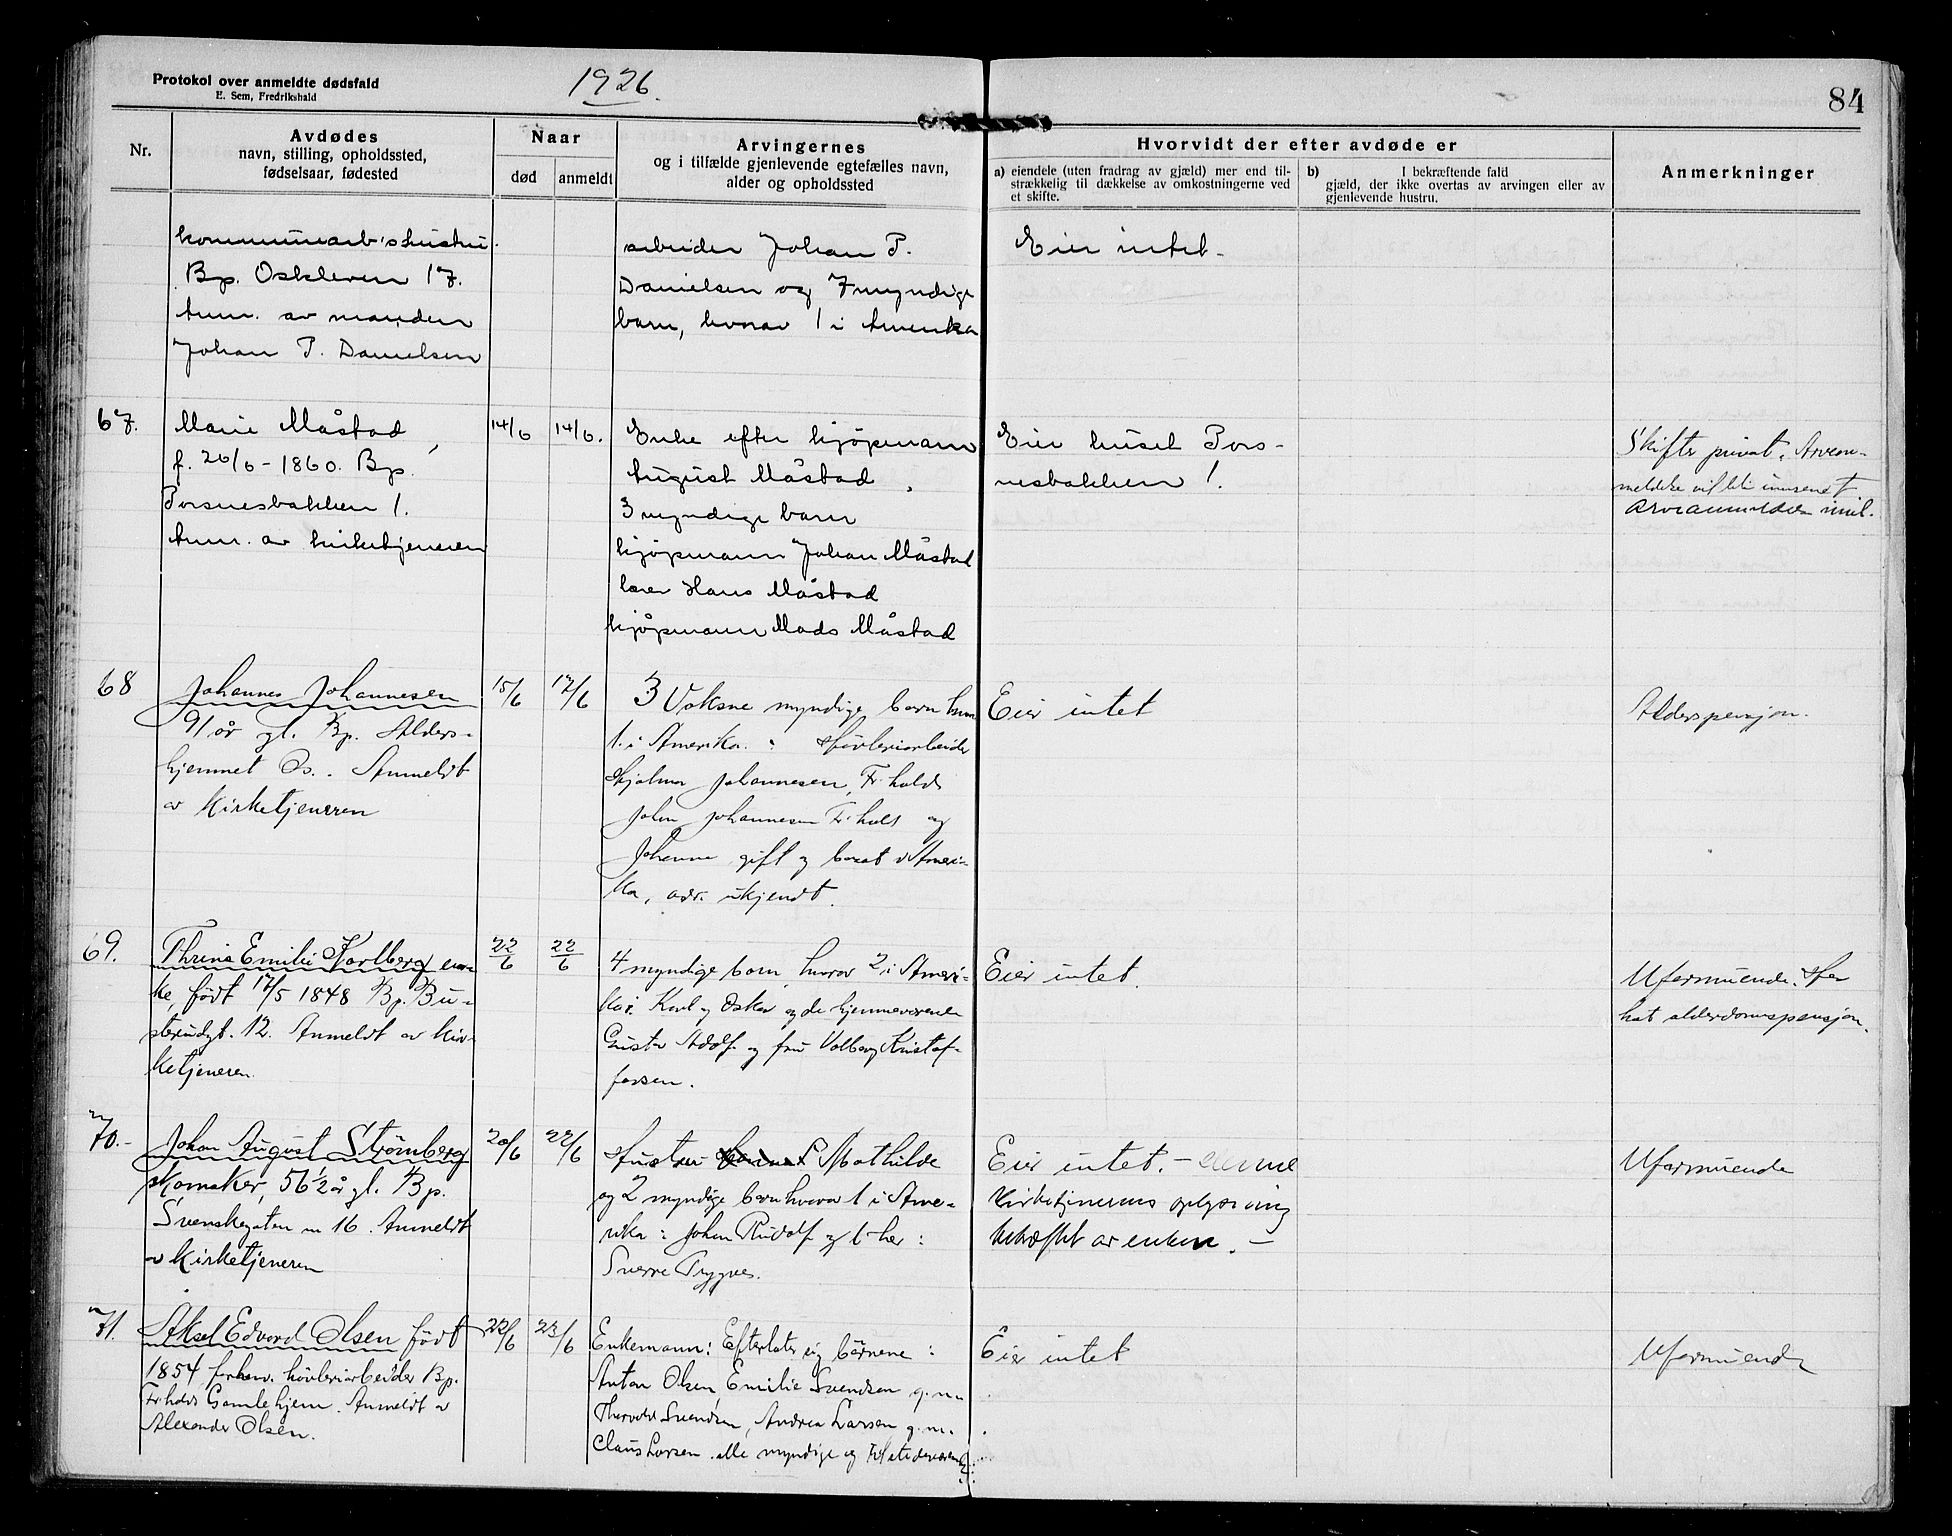 Protokol over anmeldte dødsfald
E. Sem, Fredrikshald
1926.
84
Nr.
Avdødes
navn, stilling, opholdssted,
fødselsaar, fødested
Naar
død
anmeldt
Arvingernes
og i tilfælde gjenlevende egtefælles navn,
alder og opholdssted
Hvorvidt der efter avdøde er
a) eiendele (uten fradrag av gjæld) mer end til-
strækkelig til dækkelse av omkostningerne ved
et skifte.
b) I bekræftende fald
gjæld, der ikke overtas av arvingen eller av
gjenlevende hustru.
Anmerkninger
kommunearb's hustru.
Bp. Oskleven 17.
Anm. av manden
Johan P. Danielsen
arbeider Johan P.
Danielsen og 7 myndige
barn, hvorav 1 i Amerika
Eier intet-
67.
Marie Måstad,
f. 26/6-1860. Bp.
Porsnesbakken 1.
Anm. av kirketjeneren
14/6
14/6.
Enke efter kjøpmann
August Måstad,
3 myndige barn
kjøpmann Johan Måstad
lærer Hans Måstad
kjøpmann Mads Måstad
Eier huset Pors-
nesbakken 1.
Skifter privat. Arvean-
meldelse vil bli innsendt
Arveanmeldelse innl.
68
Johannes Johannesen
91 år gl. Bp. Alders-
hjemmet Os. Anmeldt
av Kirketjeneren
15/6
17/6
3 Voksne myndige barn hvorav
1 i Amerika: Høvleriarbeider
Hjalmar Johannesen, Fr.hald
John Johannesen Fr.hald og
Johanne gift og bosat i Ameri-
ka, adr. ukjendt.
Eier intet
Alderspensjon.
69.
Thrine Emilie Karlberg en-
ke, født 17/5 1848 Bp. Bu-
sterudgt. 12. Anmeldt av kir-
ketjeneren
22/6
22/6
4 myndige barn, hvorav 2 i Ameri-
ka: Karl og Oskar og de hjemmeværende
Gustav Adolf og fru Valborg Kristof-
fersen.
Eier intet.
Uformuende. Har
hat alderdomspensjon.
70.-
Johan August Strømberg
Skomaker, 56 1/2 år gl. Bp.
Svenskegaten n 16. Anmeldt
av Kirketjeneren
20/6
22/6
Hustru Mathilde
og 2 myndige barn hvorav 1 i Ame-
rika: Johan Rudolf og 1 her:
Sverre Trygve.
Eier intet. -
Kirketjenerens oplysning
bekræftet av enken. -
Uformuende
71.
Aksel Edvard Olsen født
1854 forhenv. høvleriarbeider Bp.
Fr.halds Gamlehjem. Anmeldt av
Alexander Olsen.
22/6
23/6
Enkemann: Efterlater sig børnene:
Anton Olsen, Emilie Svendsen g.m.
Thorvald Svendsen, Andrea Larsen g.m.
Claus Larsen. alle myndige og
Eier intet
Uformuende